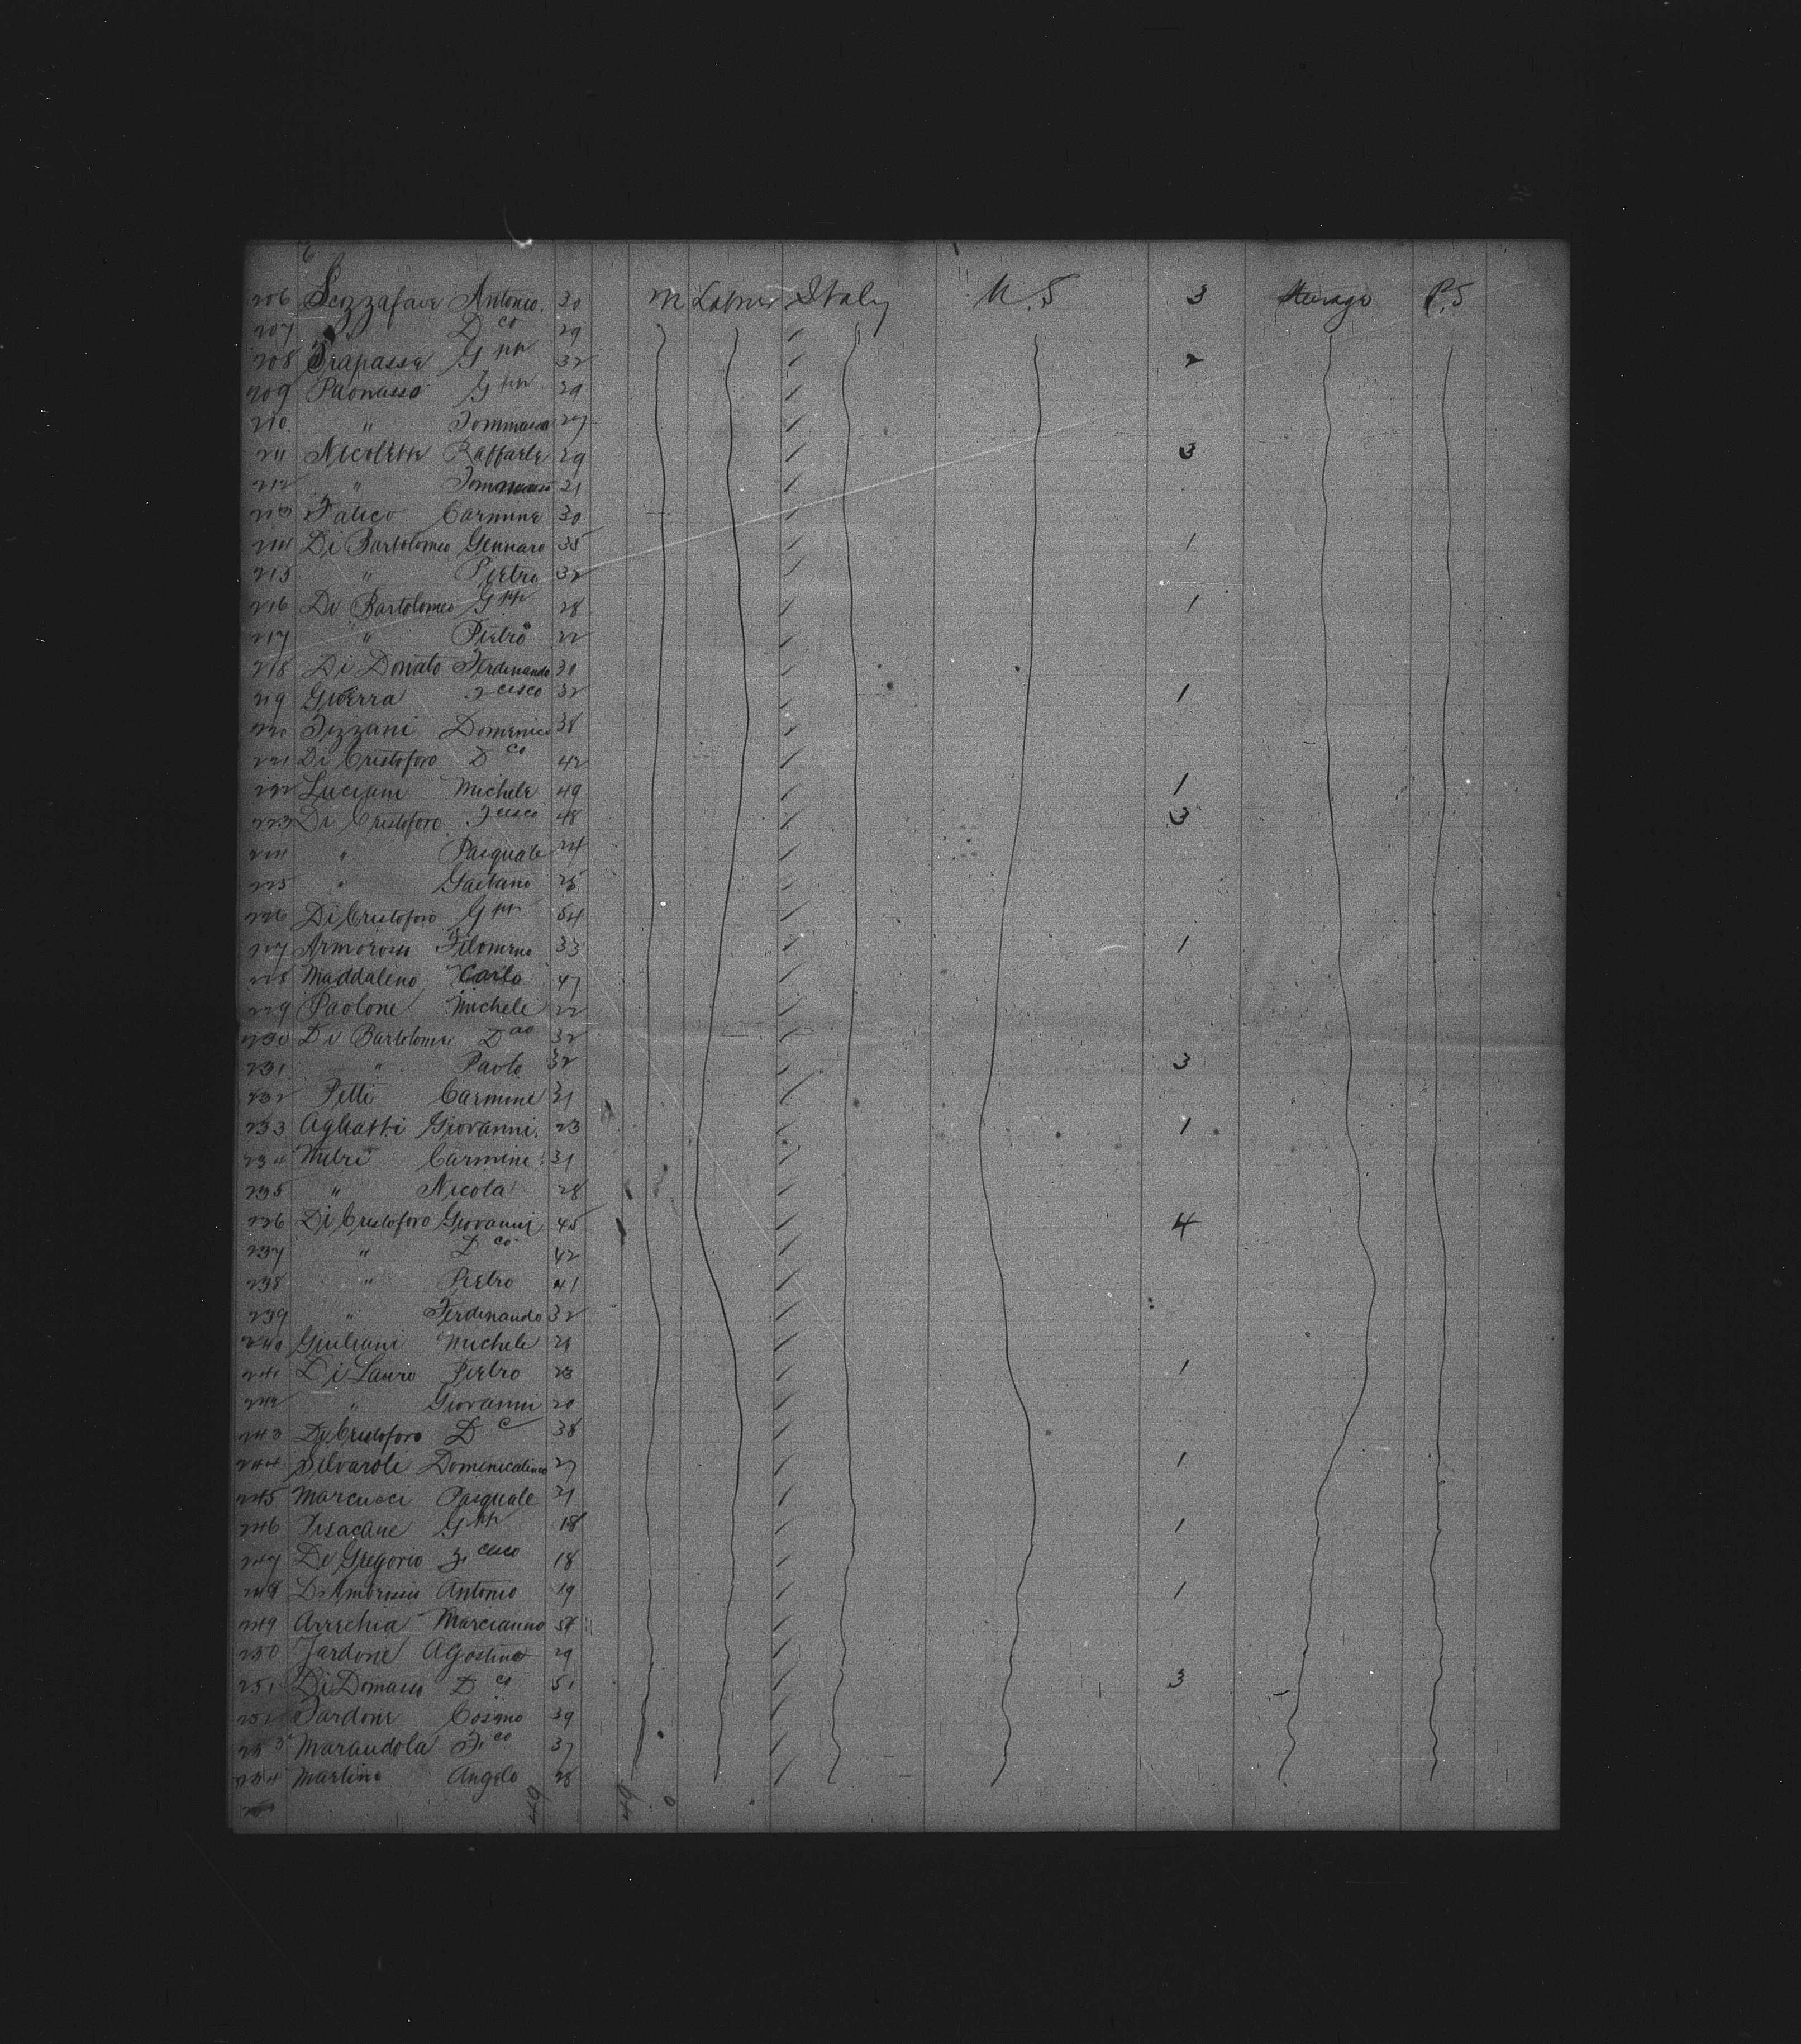 6
206 Scozzafave Antonio. 30 M Laborer Italy U.S 3 Steerage P.S
207 " D co 29
208 Trapassa G pp 32 2
209 Paonasso G pp 29
210. " Tommaso 27
211 Nicolette Raffaele 29 3
212 " Tommaso 21
213 Fatico Carmine 30
214 Di Bartolomeo Gennaro 35 1
215 " Pietro 32
216 Di Bartolomeo G pp 28 1
217 " Pietro 22
218 Di Donato Ferdinando 30
219 Guerra F cesco 32 1
220 Tizzani Domenico 38
221 Di Cristoforo D co 42
222 Luciani Michele 49 1
223 Di Cristoforo F cesco 48 3
224 " Pasquale 24
225 " Gaetano 25
226 Di Cristoforo G pp 54
227 Armorosu Filomeno 33 1
228 Maddaleno Carlo 47
229 Paolone Michele 22
230 Di Bartolomeo D co 32
231. " Paolo 32 3
232 Petti Carmine 31
233 Agliatti Giovanni. 23 1
234 Mitri Carmine 31
235 " Nicola 28
236 Di Cristoforo Giovanni 45 4
237 " D co 42
238 " Pietro 41
239 " Ferdinando 32
240 Giuliani Michele 29
241 Di Lauro Pietro 23 1
242 " Giovanni 20
243 Di Cristoforo D c 38
244 Silvaroli Domenicatino 27 1
245 Marcucci Pasquale 21
246 Pisacane G pp 18 1
247 De Gregorio F cesco 18
248 D'Ambrosio Antonio 19 1
249 Arrechia Marcianno
250 Jardone Agostino 29
251 Di Domasso D co 51 3
252 Jardone Cosimo 39
253 Marandola F co 37
254 Martino Angelo 28
49 49 0